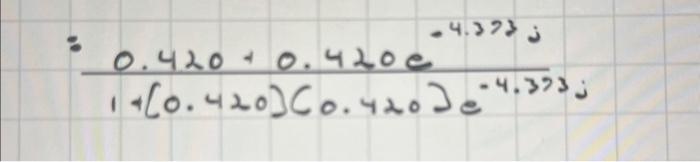 = 0.420 + 0.420e^-4.373j
1+[0.420][0.420]e^-4.373j